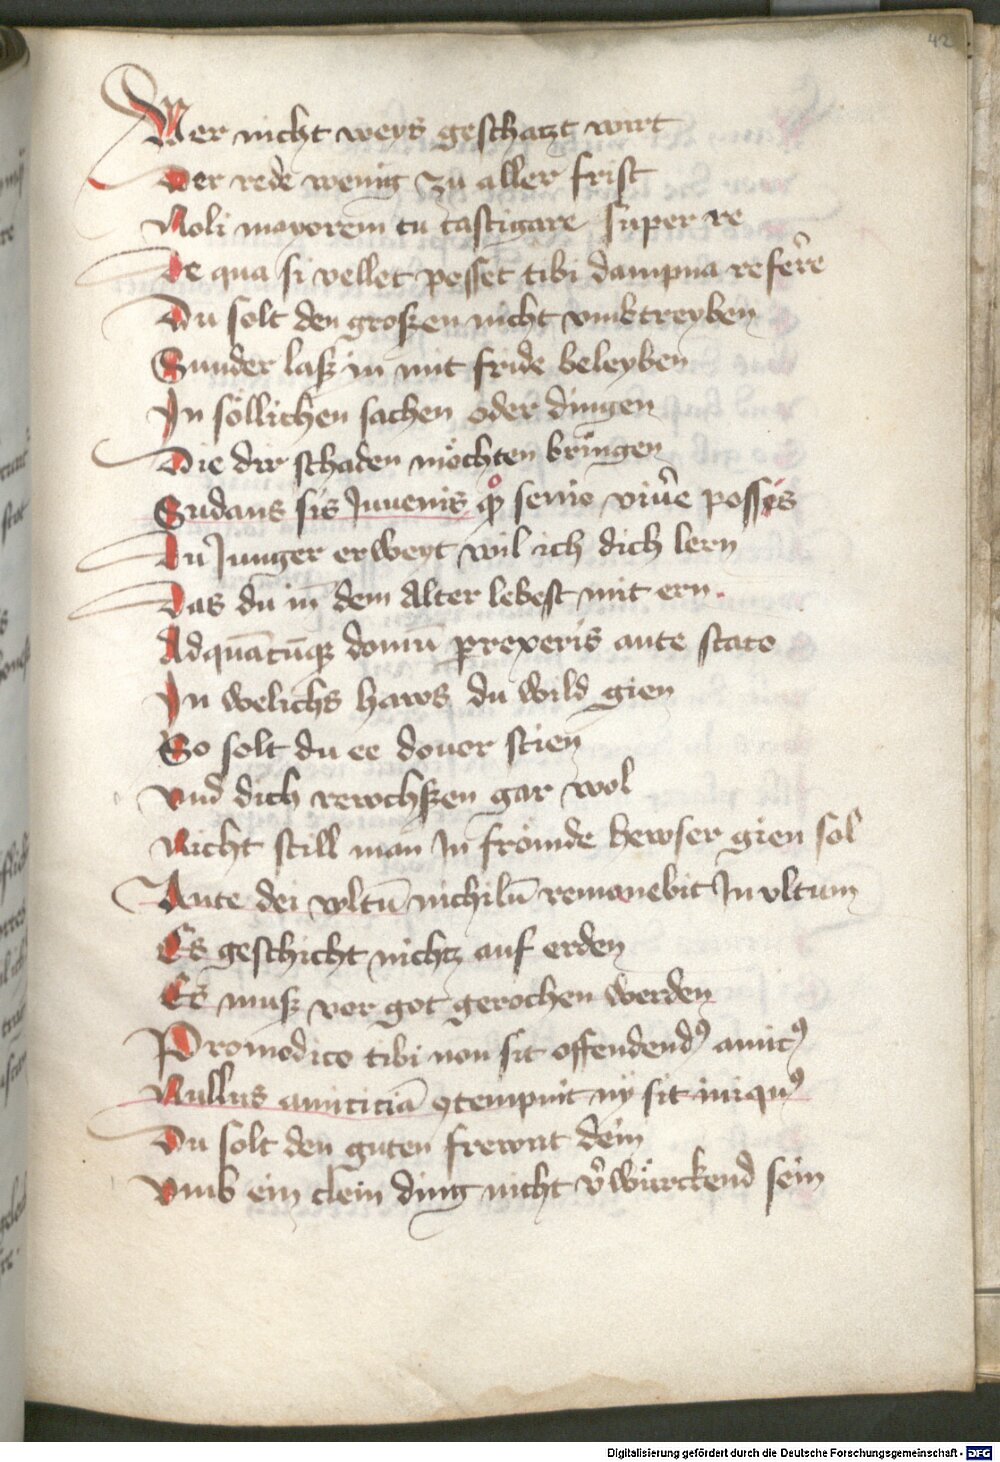 42
Wer nicht weys geschatzt wirt
Der rede wenig zu aller frist
Noli mayorem tu castigare super re
De qua si vellet posset tibi dampna refer̄e
Du solt den großen nicht vmbtreyben
Sunder laß in mit fride beleyben
In söllichen sachen oder dingen
Die dir schaden möchten bringen
Sudans sis Juuenis qͦ senio viūe possis
Du Junger erweyt wil ich dich lern
Das du in dem Alter lebest mit ern.
Adquācūqꝫ domū prexeris ante stato
In welichs haws du wild gien
So solt du ee douor stien
vnd dich rewchßen gar wol
Nicht still man In frömde hewser gien sol
Ante dei vvltū nichilū remanebit Jn vltum
Es geschicht nichtz auf erden
Es muß vor got gerochen werden
Pro modico tibi non sit offendendꝰ amicꝰ
Nullus amiciciā ꝯtempnit nÿ sit iniquꝰ
Du solt den guten frewnt dein
vmb ein clein ding nicht v̄würckend sein
Digitalisierung gefördert durch die Deutsche Forschungsgemeinschaft - DFG